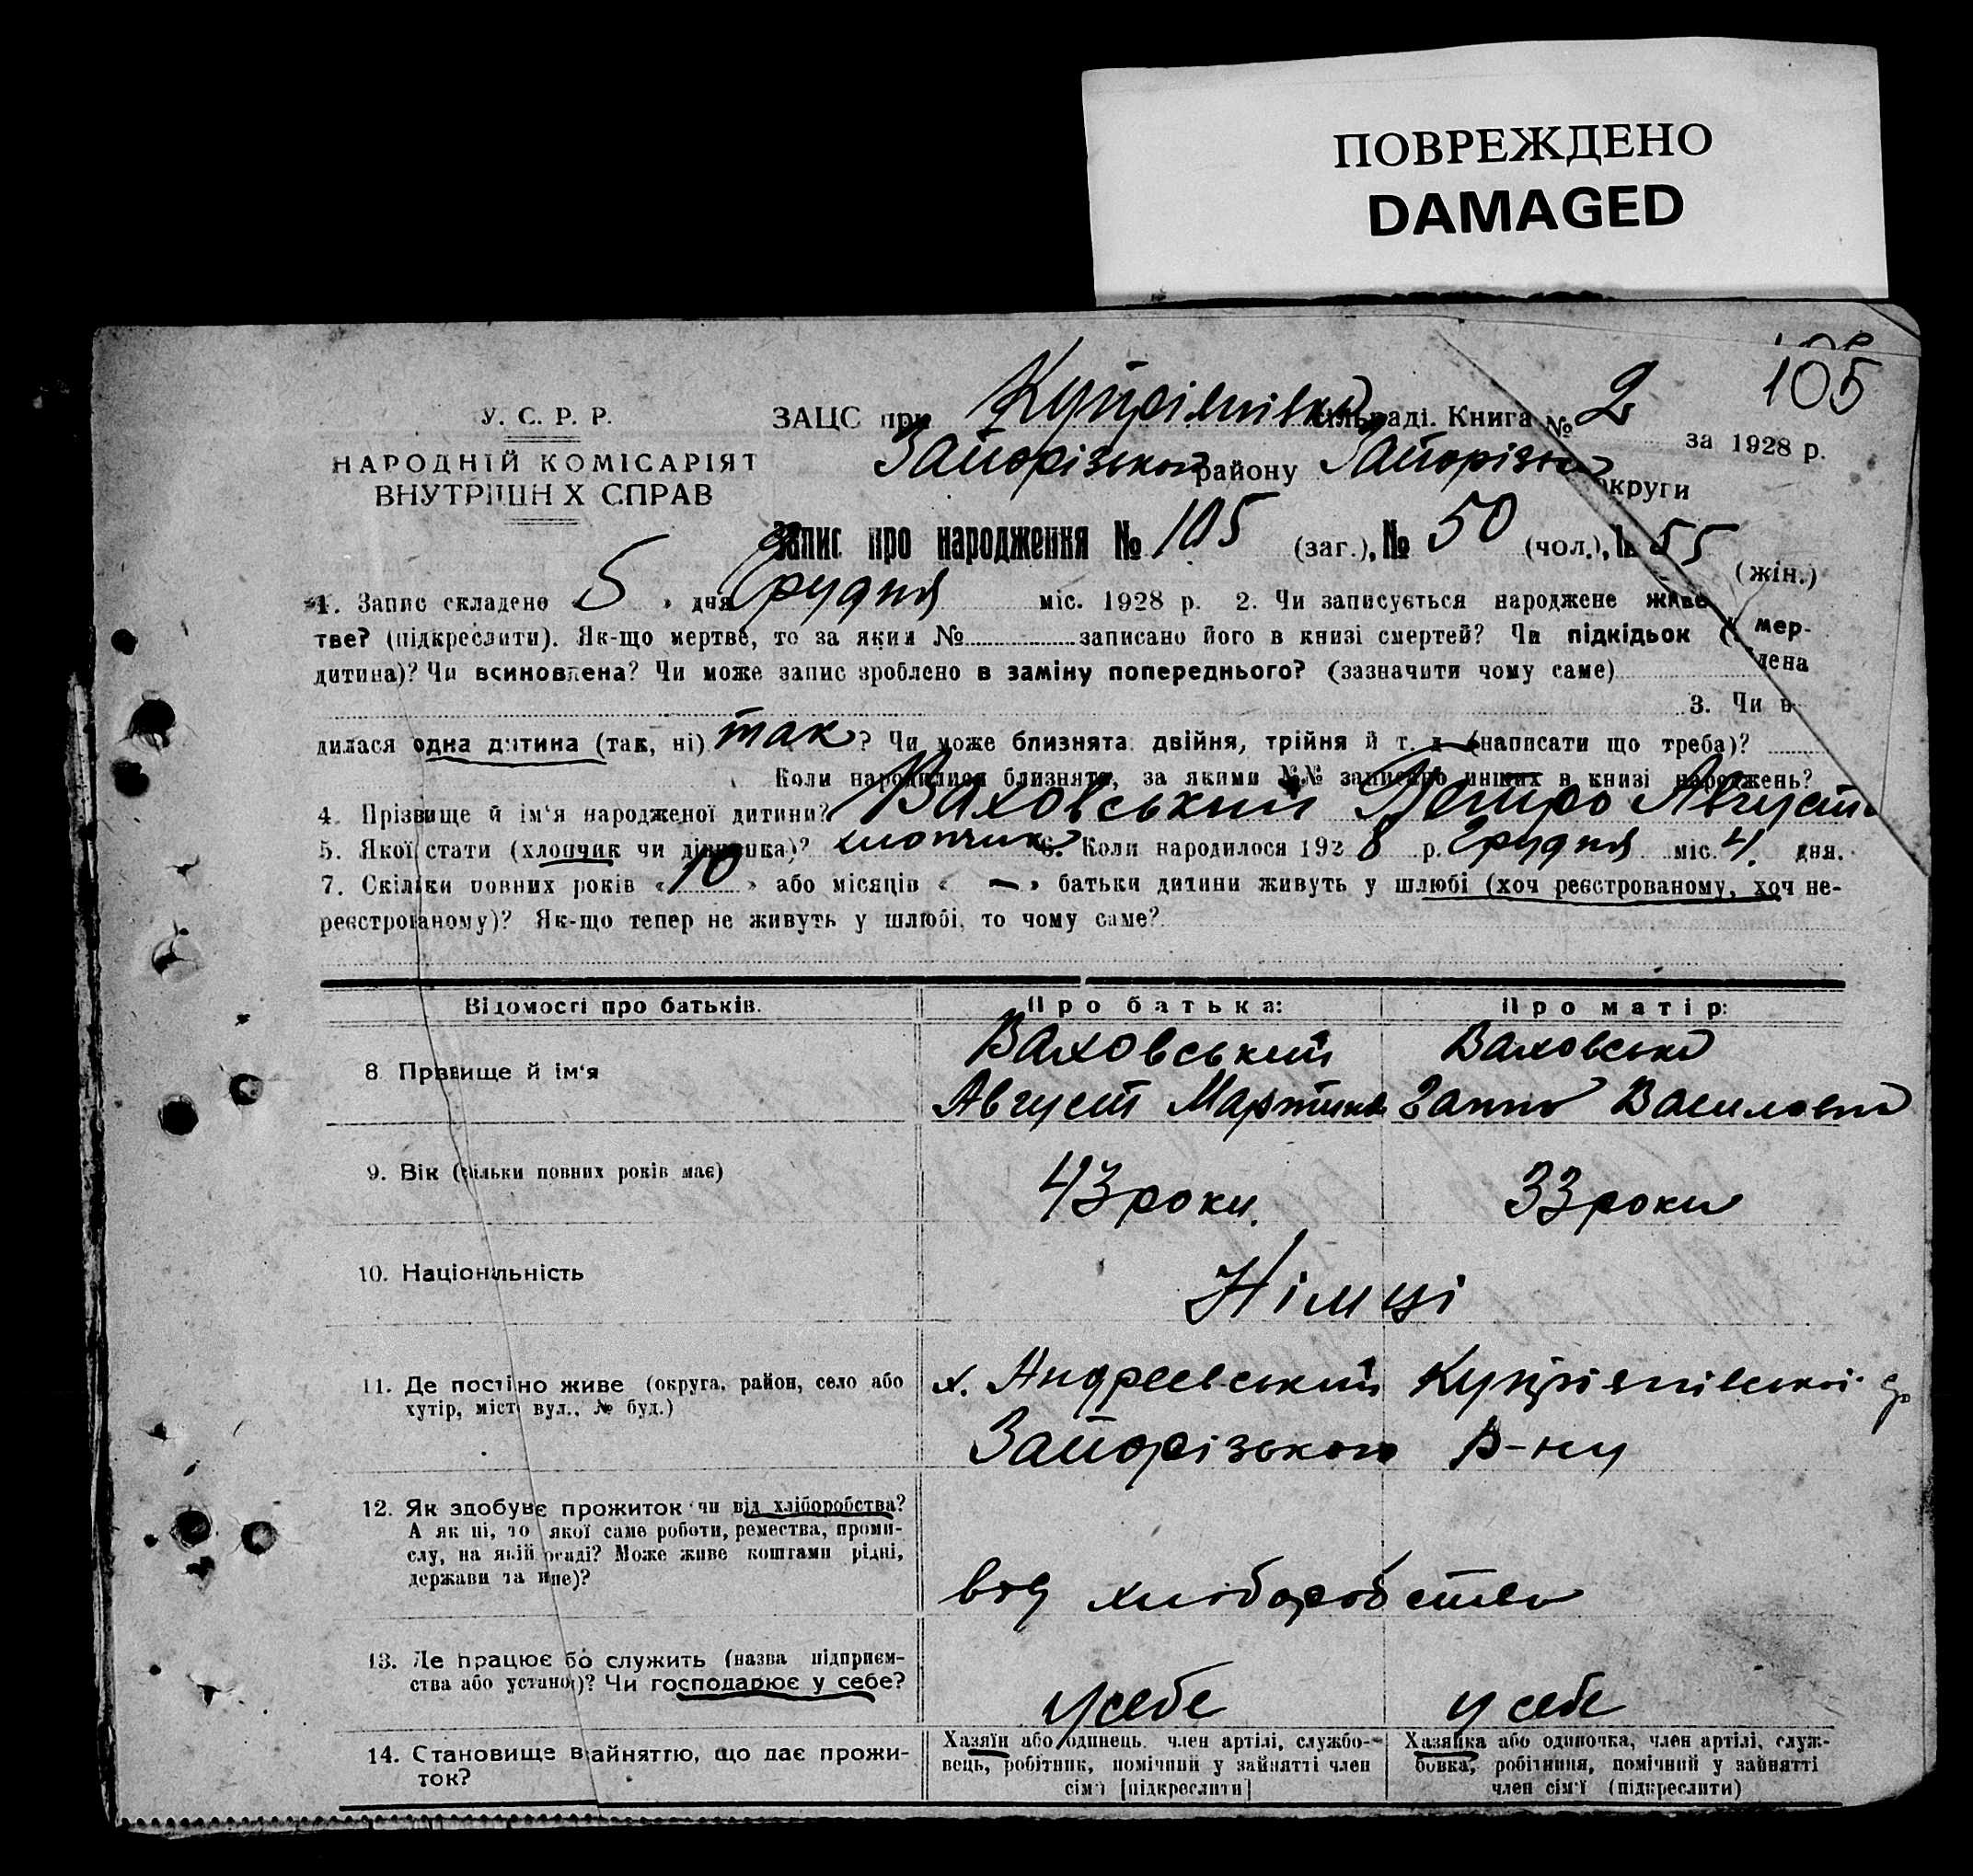 ПОВРЕЖДЕНО
DAMAGED
105
У. С. Р. Р.
НАРОДНІЙ КОМІСАРІЯТ
ВНУТРІШН Х СПРАВ
ЗАЦС при Купріянівка сільраді. Книга № 2 за 1928 р.
Запорізького району Запорізької округи
Запис про народження № 105 (заг.), № 50 (чол.), № 55 (жін.)
1. Запис складено 5 » дня Грудня міс. 1928 р. 2. Чи записується народжене живе мер-
тве? (підкреслити). Як-що мертве, то за яким № записано його в книзі смертей? Чи підкідьок
дитина)? Чи всиновлена? Чи може запис зроблено в заміну попереднього? (зазначити чому саме)
3. Чи в
дилася одна дитина (так, ні) так? Чи може близнята: двійня, трійня й т. д. (написати що треба)?
Коли народилися близнята, за якими №№ записано инших в книзі народжень?
4. Прізвище й ім'я народженої дитини? Ваховський Петро Август
5. Якої стати (хлопчик чи дівчинка)? хлопчик 6. Коли народилося 1928 р. Грудня міс. 4. дня.
7. Скільки повних років « 10 » або місяців « — » батьки дитини живуть у шлюбі (хоч реєстрованому, хоч не-
реєстрованому)? Як-що тепер не живуть у шлюбі, то чому саме?
Відомості про батьків. Про батька: Про матір:
8 Прізвище й ім'я Ваховський Ваховська
Август Мартинов Ганна Василовна
9. Вік (скільки повних років має) 43 роки. 33 роки
10. Національність Німці
11. Де постійно живе (округа, район, село або х. Андреевський Купріянівської
хутір, місто вул., № буд.) Запорізького р-ну
12. Як здобуває прожиток чи від хліборобства?
А як ні, то якої саме роботи, ремества, проми-
слу, на якій посаді? Може живе коштами рідні,
держави та инше)? від хліборобства
13. Де працює або служить (назва підприєм-
ства або установ)? Чи господарює у себе? у себе у себе
14. Становище в зайняттю, що дає прожи-
ток?
Хазяїн або одинець, член артілі, службо-
вець, робітник, помічний у зайнятті член
сім'ї [підкреслити]
Хазяйка або одиночка, член артілі, служ-
бовка, робітниця, помічний у зайнятті
член сім'ї (підкреслити)